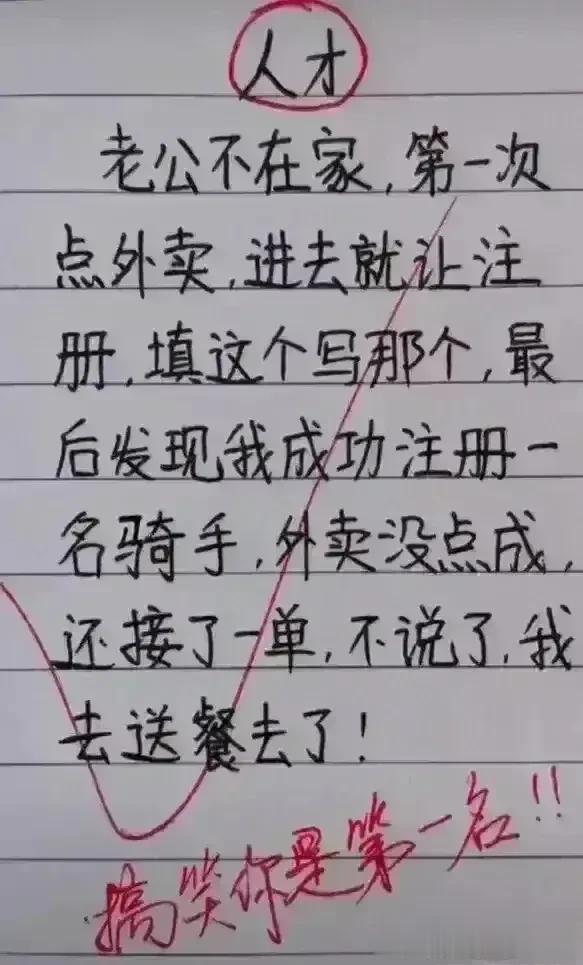 人才
老公不在家,第一次
点外卖,进去就让注
册,填这个写那个,最
后发现我成功注册一
名骑手,外卖没点成,
还接了一单,不说了,我
去送餐去了!
搞笑你是第一名!!